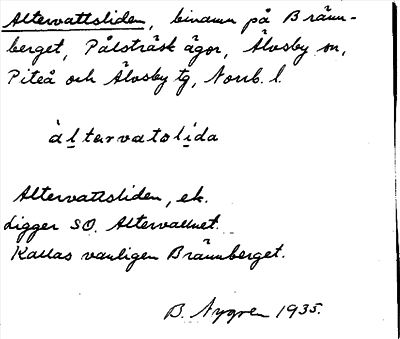 Altervattsliden, binamn på Bränn-
berget, Pålsträsk ägor, Älvsby sn,
Piteå och Älvsby tg, Norrb. l.
àltarvatolída
Altervattsliden, ek.
Ligger SO. Altervattnet.
Kallas vanligen Brännberget.
B. Nygren 1935.